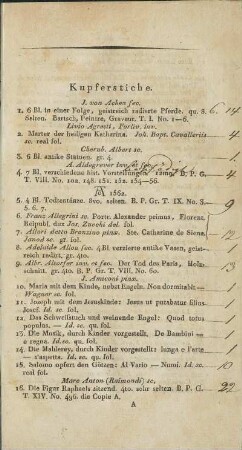 Kupferstiche.
J. von Achen fec.
1. 6 Bl. in einer Folge, geistreich radierte Pferde. qu. 8. 6 14
Selten. Bartsch, Peintre, Graveur. T. I. No. 1—6.
Livio Agresti, Forliv. inv.
2. Marter der heiligen Katharina. Joh. Bapt. Cavalleriis 4
sc. real fol.
Cherub. Albert sc.
3. 6 Bl. antike Statuen. gr. 4. 1
A. Aldegrever inv.
4. 7 Bl. verschiedene hist. Vorstellungen B. P. G. 4
T. VIII. No. 102. 148. 151. 134—56.
1562.
5. 4 Bl. Todtentänze. 8vo. selten. B. P. Gr. T. IX. No. 9
S. 6. 7.
6. Franc Allegrini sc. Portr. Alexander primus, Florens. 1
Reipubl. dux Jos. Zucchi del. fol.
7. Allori detto Bronzino pinx. Ste. Catharine de Siene, 12
sc. gr. 4.
8. Adelhilde Allou fec. 4 Bl. verzierte antike Vasen, geist-
reich radirt, gr. 4to.
9. Albr. Altorfer inv. ex fec. Der Tod des Paris, Holz- 13
schnitt. gr. 4to. B. P. Gr. T. VIII. No. 60.
J. Amiconi pinx.
10. Maria mit dem Kinde, nebst Engeln. Non dormitabit— 1
Wagner sc. fol.
11. Joseph mit dem Jesuskinde: Jesus ut putabatur filius—
Josef. Id. sc. fol.
12. Das Schweißtuch und weinende Engel: Quod totus
populus. — Id. sc. qu. fol.
13. Die Musik, durch Kinder vorgestellt. De Bambini—
e regna. Id. sc. qu. fol.
14. Die Mahlerey, durch Kinder vorgestellt: lunga e l'arte—
s'aspetta. Id. sc. qu. fol. 4
15. Salomo opfert den Götzen: Al Vario — Numi. Id. sc. 10
real fol.
Marc Anton (Raimondi) sc.
16. Die Figur Raphaels sitzend. 4to. sehr selten. B. P. G. 22
T. XIV. No. 496. die Copie A.
A